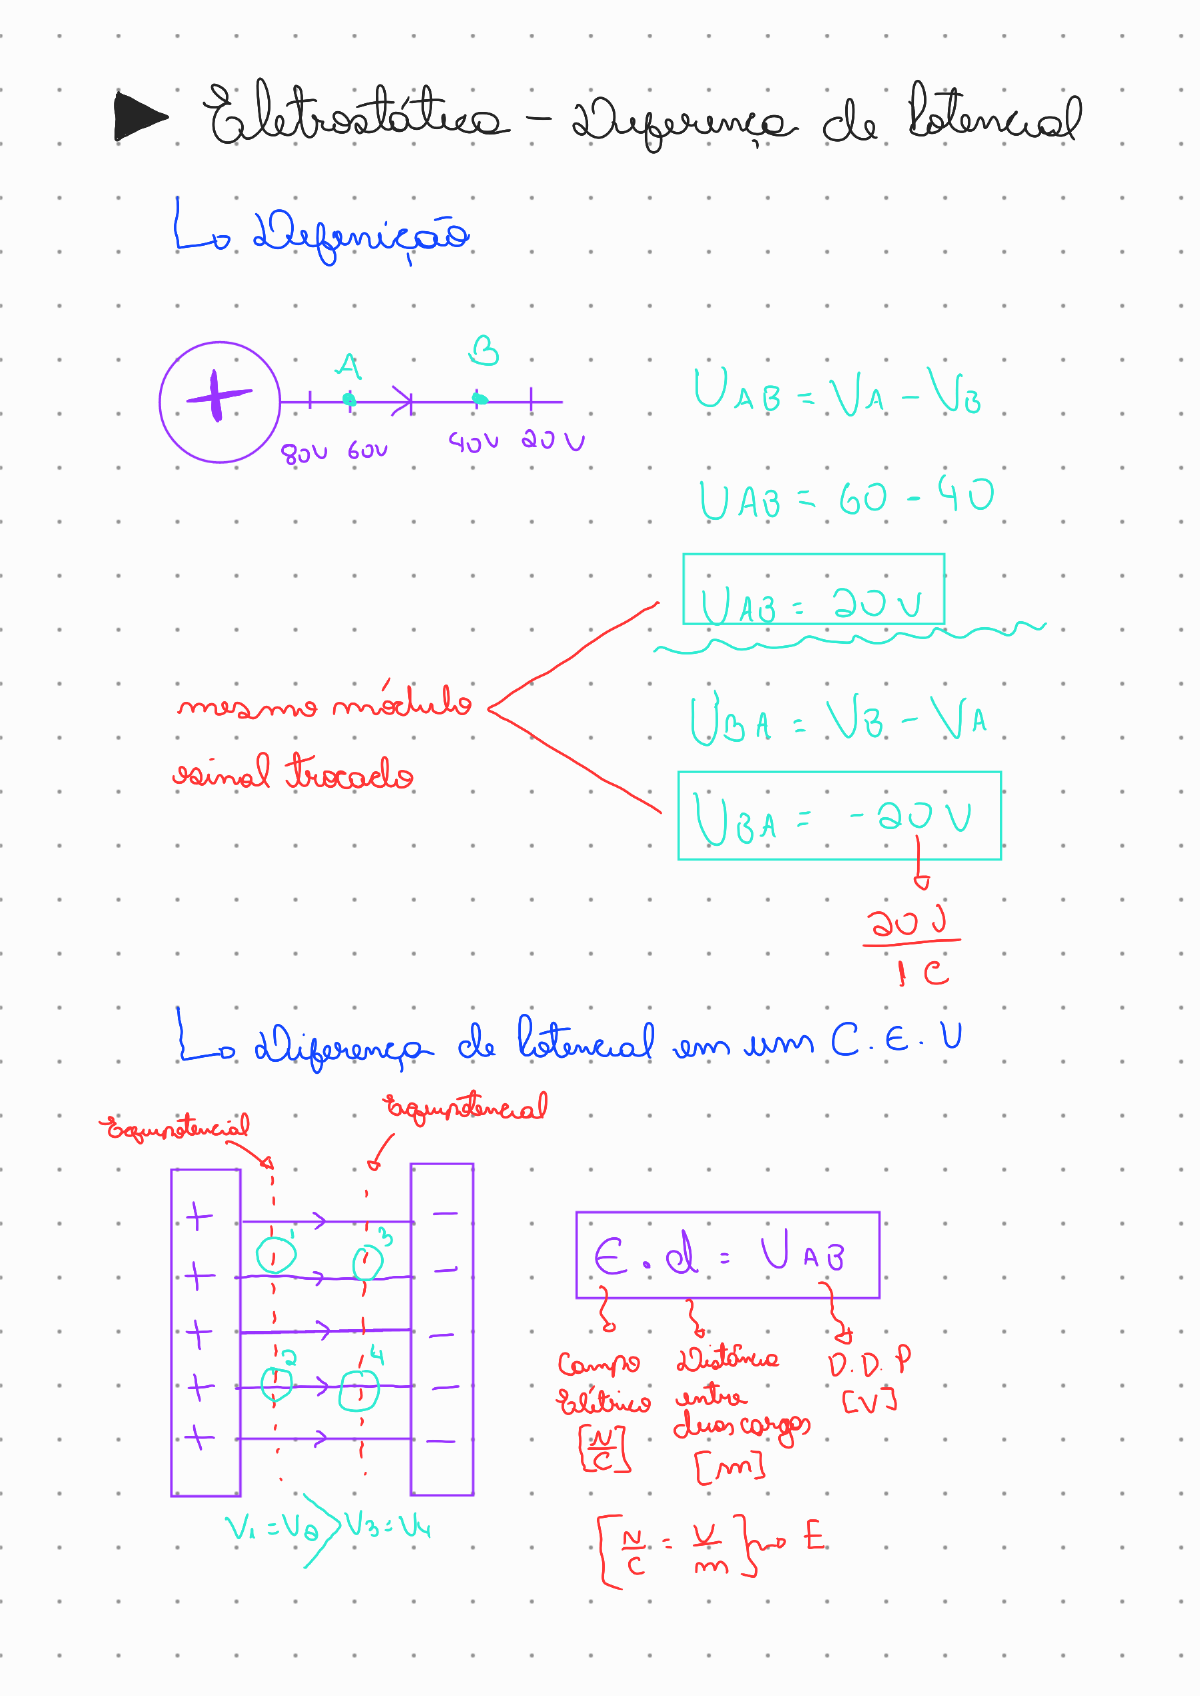 Eletrostática - Diferença de Potencial
Definição
A B
+
80V 60V 40V 20V
UAB = VA - VB
UAB = 60 - 40
UAB = 20V
mesmo módulo
e sinal trocado
UBA = VB - VA
UBA = -20V
20J
1C
Diferença de Potencial em um C.E.U
Equipotencial Equipotencial
+ -
1 3
+ -
+ -
2 4
+ -
+ -
V1 = V2 > V3 = V4
E . d = UAB
Campo Distância D.D.P
Elétrico entre [V]
[N/C] duas cargas
[m]
[N/C = V/m] E